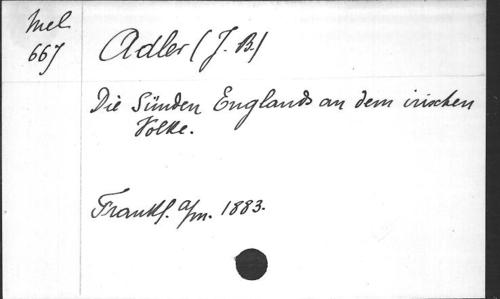 Mel
667
Adler (J. B.)
Die Sünden Englands an dem irischen
Volke.
Frankf. a/m. 1883.